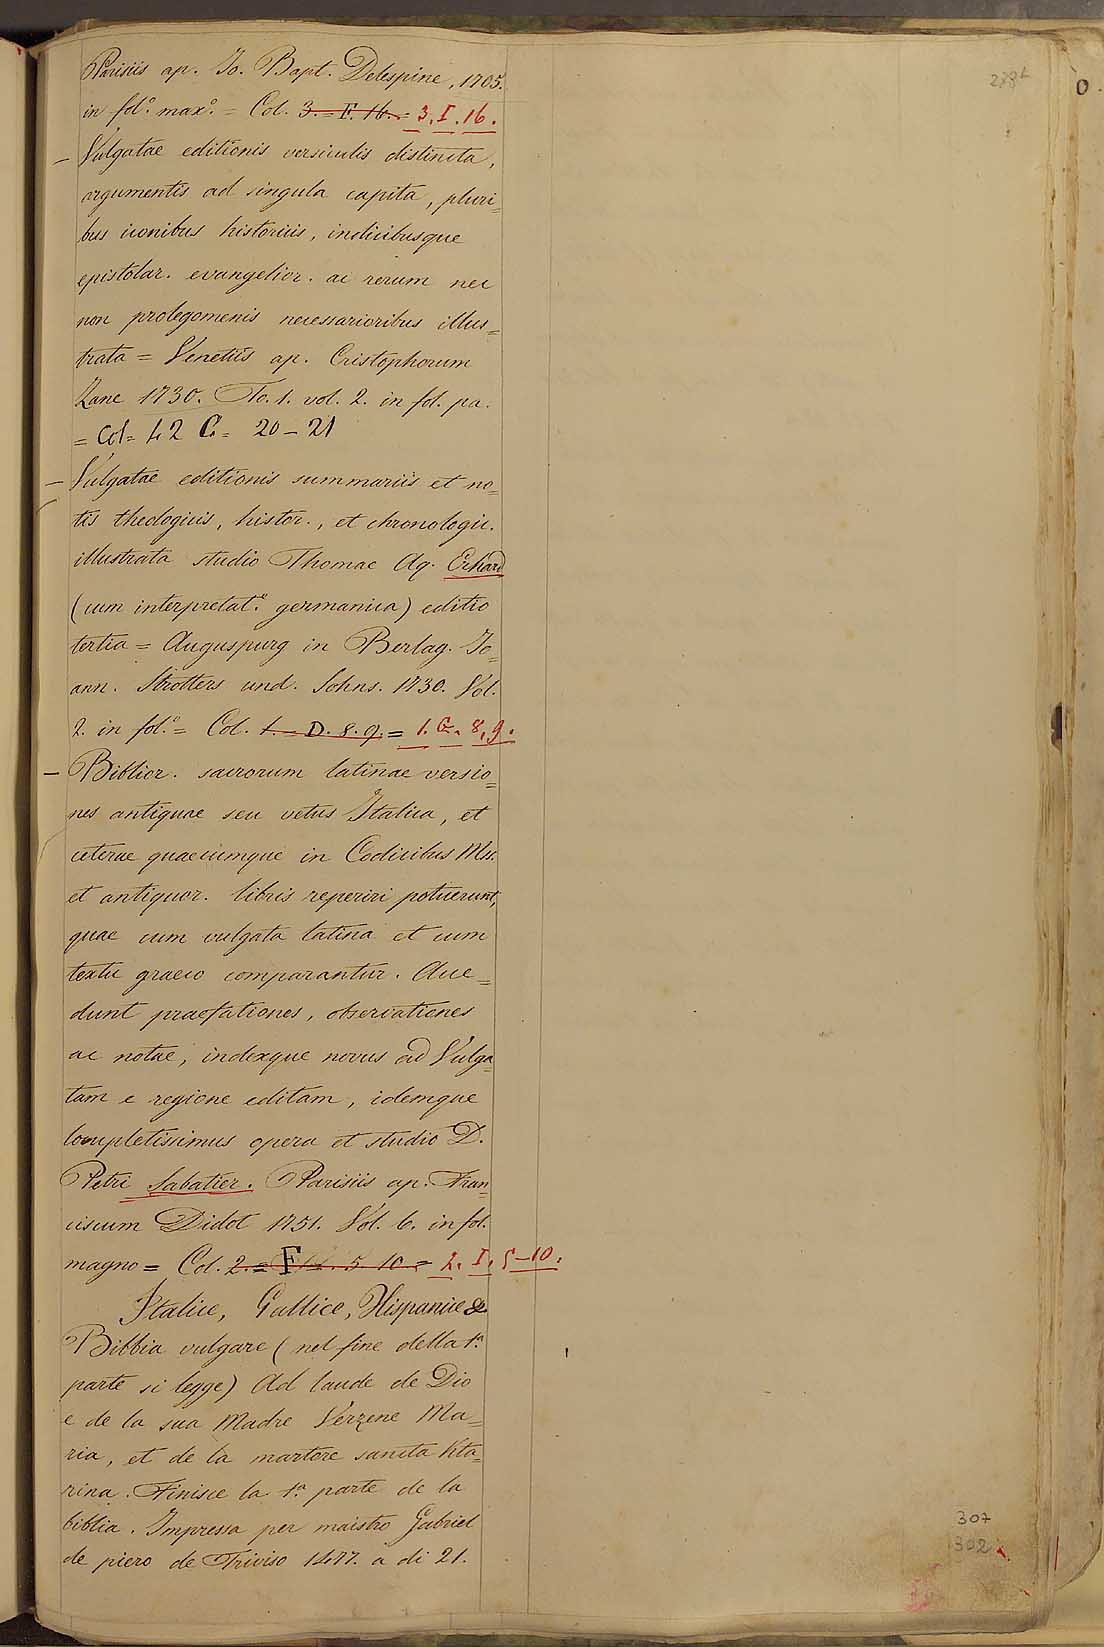 Parisiis ap. Jo. Bapt. Delespine, 1705.
in fol.° max.° = Col. 3. = F. 16. = 3. I. 16.
— Vulgatae editionis versiculis distincta,
argumentis ad singula capita, pluri=
bus iconibus historicis, indicibusque
epistolar. evangelior. ac rerum nec
non prolegomenis necessarioribus illus=
trata = Venetiis ap. Cristophorum
Zane 1730. To. 1. vol. 2. in fol. pa.
= Col = 42 C = 20 – 21
— Vulgatae editionis summariis et no=
tis theologicis, histor., et chronologic.
illustrata studio Thomae Aq. Erhard
(cum interpretat.e germanica) editio
tertia = Auguspurg in Berlag. Jo=
ann. Strotters und. Sohns. 1730. Vol.
2. in fol.° = Col. 1. = D. 8. 9. = 1. G. 8, 9.
— Biblior. sacrorum latinae versio=
nes antiquae seu vetus Italica, et
ceterae quaecumque in Codicibus Mss.
et antiquor. libris reperiri potuerunt,
quae cum vulgata latina et cum
textu graeco comparantur. Acce=
dunt praefationes, observationes
ac notae, indexque novus ad Vulga=
tam e regione editam, idemque
locupletissimus opera et studio D.
Petri Sabatier. Parisiis ap. Fran=
ciscum Didot 1751. Vol. 6. in fol.
magno = Col. 2. = F 5 10 = 2. I. 5–10.
Italice, Gallice, Hispanice &
Bibbia vulgare (nel fine della 1.a
parte si legge) Ad laude de Dio
e de la sua Madre Verzene Ma=
ria, et de la martore sancta Kta=
rina. Finisce la 1.a parte de la
biblia. Impressa per maistro Gabriel
de piero de Triviso 1477. a di 21.
307
302